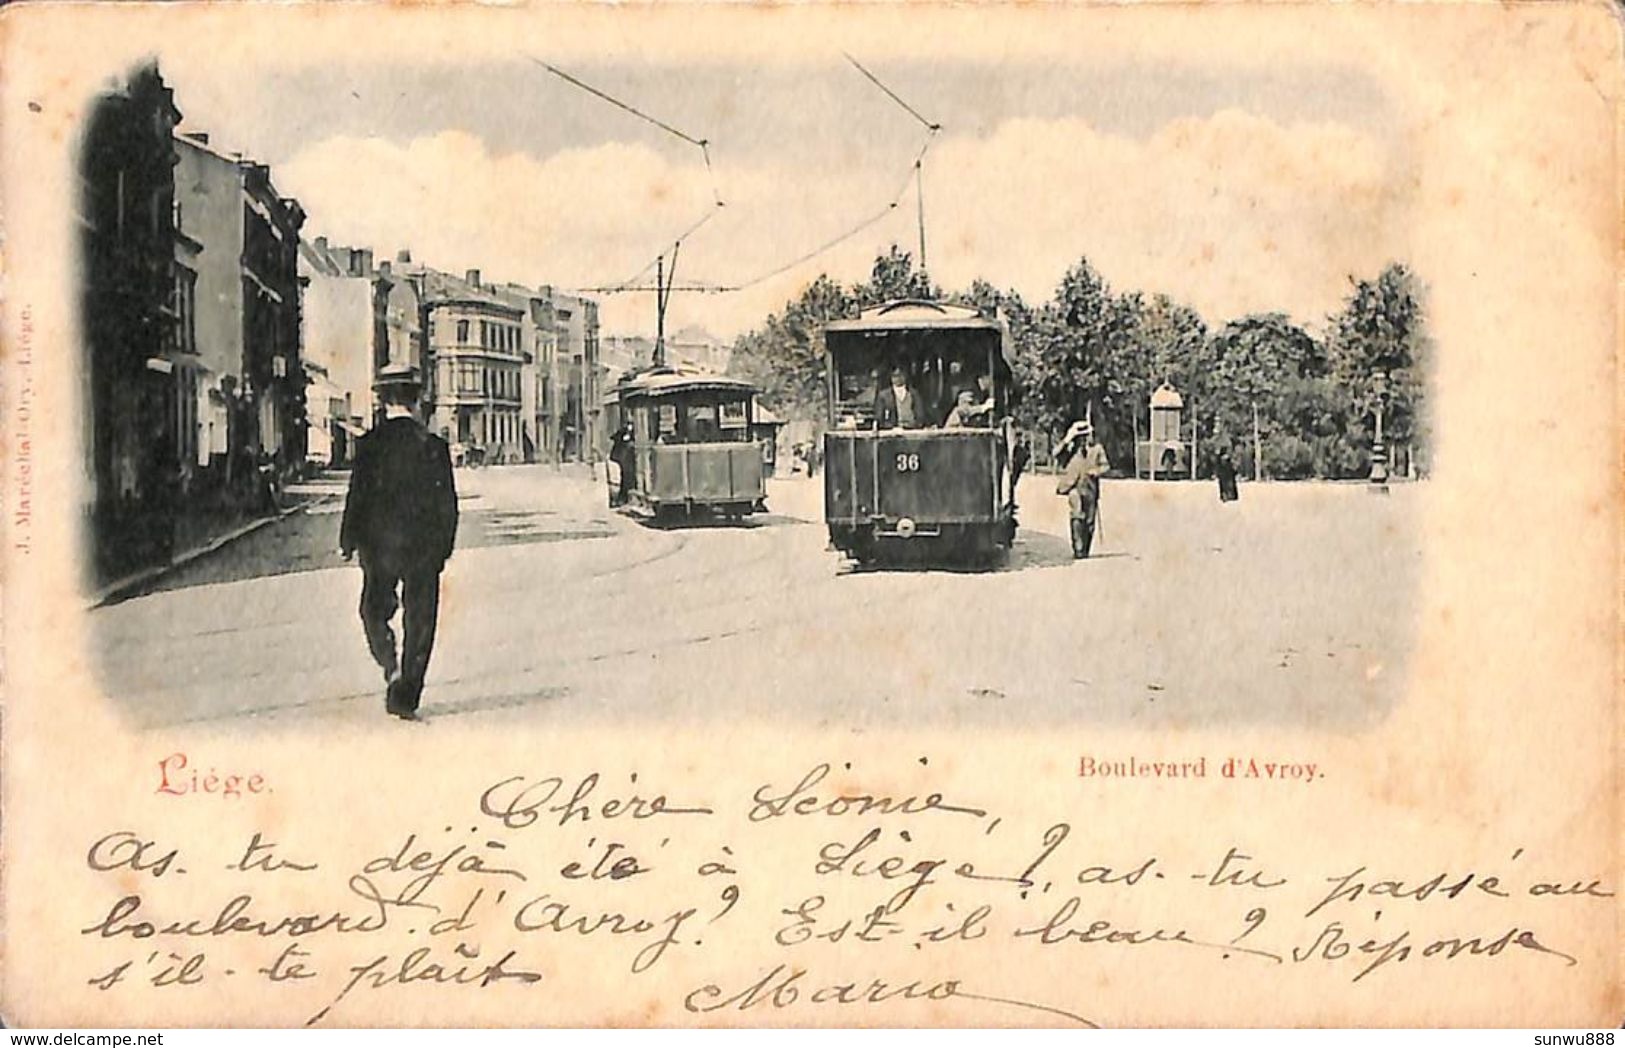 J. Maréchal-Ory, Liége.
36
Liége.
Boulevard d'Avroy.
Chère Léonie,
As-tu déjà été à Liège?, as-tu passé au
boulevard d'Avroy? Est-il beau? Réponse
s'il-te plaît
Maria
www.delcampe.net
sunwu888